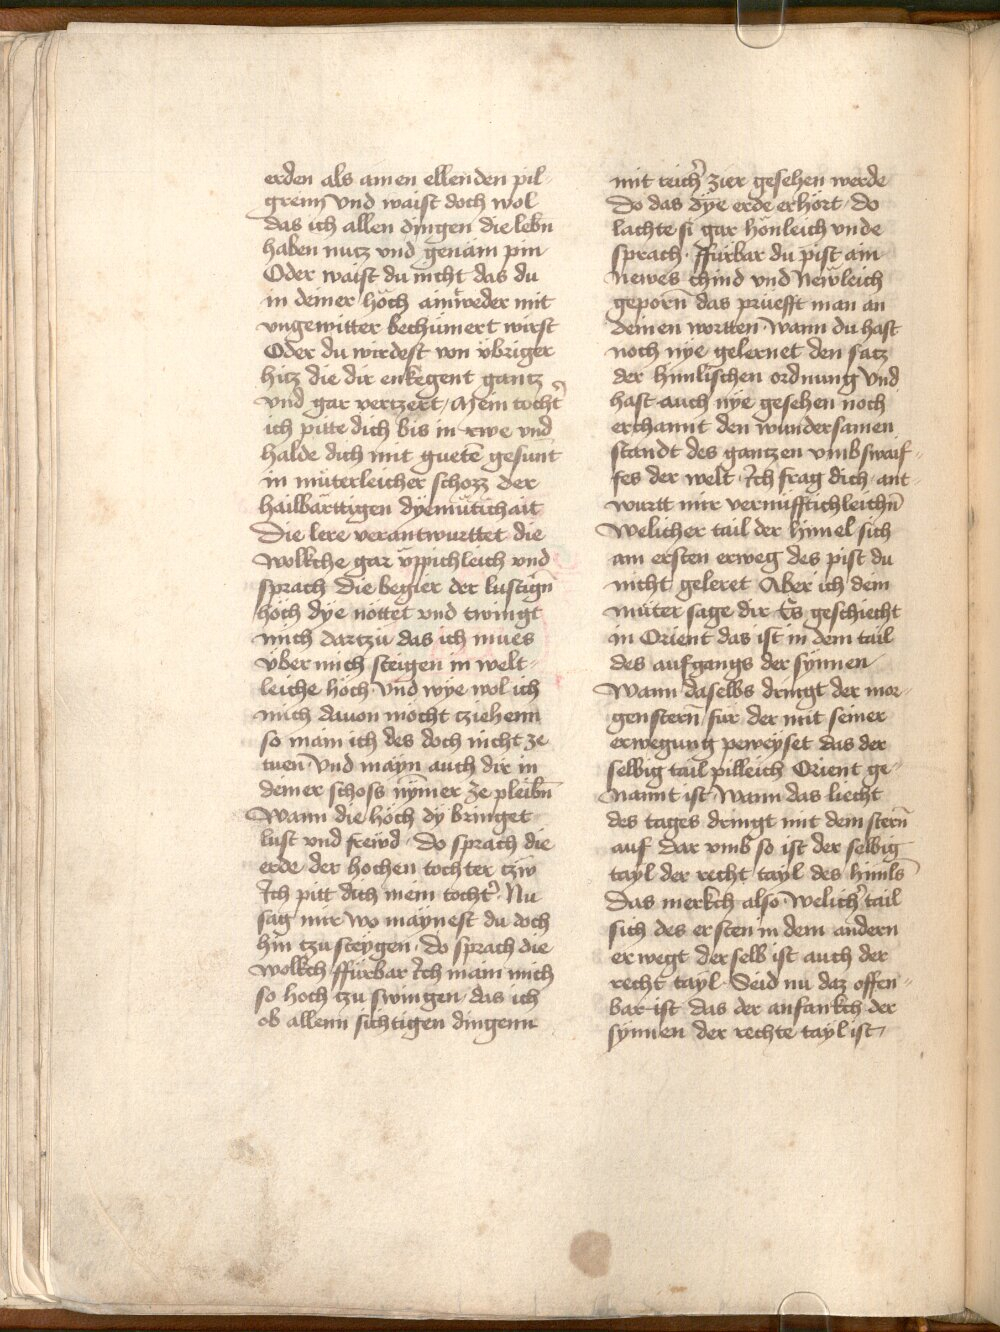 erden als ainen ellenden pil-
greim Vnd waist doch wol
das ich allen dingen die lebn̄
haben nutz vnd genäm pin
Oder waist du nicht das du
in deiner höch aintweder mit
vngewitter bechümert wirst
Oder du wirdest von übriger
hitz die dir enkegent gantz
vnd gar verczert / Mein tocht̉
ich pitte dich bis in rwe vnd
halde dich mit guetē gesunt
in müterleicher schozz der
hailbärttigen dyemütichait
Die lere verantwurttet die
wolkche gar üppichleich vnd
sprach Die begier der lustign̄
höch dye nöttet vnd twingt
mich dartzü das ich mues
über mich steigen in welt-
leiche höch Vnd wye wol ich
mich dauon möcht cziehenn
so main ich des doch nicht ze
tuen Vnd mayn auch dir in
deiner schoss nÿmer ze pleibn̄
Wann die höch dy bringet
lust vnd frewd · Do sprach die
erde der hochen tochter czw
Ich pitt dich mein tocht̉ Nu
sag mir wo maynest du doch
hin tzu steygen · Do sprach die
wolkch ffürbar Ich main mich
so hoch tzu swingen das ich
ob allenn sichtigen dingenn
mit reich̉ zier gesehen werde
Do das dye erde erhört · do
lachte si gar hönleich vnde
sprach · Ffürbar du pist ain
newes chind vnd Newleich
geporn̄ das prüefft man an
deinen wortten · Wann du hast
noch nye gelernet den satz
der himlischen ordnung Vnd
hast auch nye gesehen noch
erchannt den wundersamen
standt des gantzen vmbswaif-
fes der welt · Ich frag dich ant-
wurtt mir vernüfftichleichn̄
Welicher tail der himel sich
am ersten erweg des pist du
nicht geleret Aber ich dein
müter sage dir Es geschiecht
in Orient das ist in dem tail
des aufgangs der synnen
Wann daselbs dringt der mor-
genstern̄ für der mit seiner
erwegung peweyset das der
selbig tail pilleich Orient ge-
nannt ist Wann das liecht
des tages dringt mit dem stern̄
auf Dar vmb so ist der selbig
tayl der recht tayl des himls
Das merkch also welich̉ tail
sich des ersten in dem andern
erwegt der selb ist auch der
recht tayl · Seid nu daz offen-
bar ist das der anfankch der
synnen der rechte tayl ist